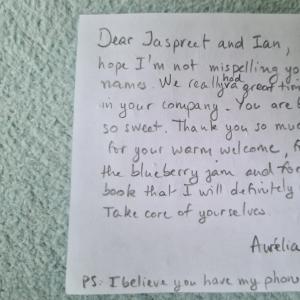 Dear Jaspreet and Ian,
hope I'm not mispelling yo
names. We really had a great tim
in your company. You are b
so sweet. Thank you so mu
for your warm welcome, f
the blueberry jam and for
book that I will definitely
Take care of yourselves.
Aurélia
PS: I believe you have my phon